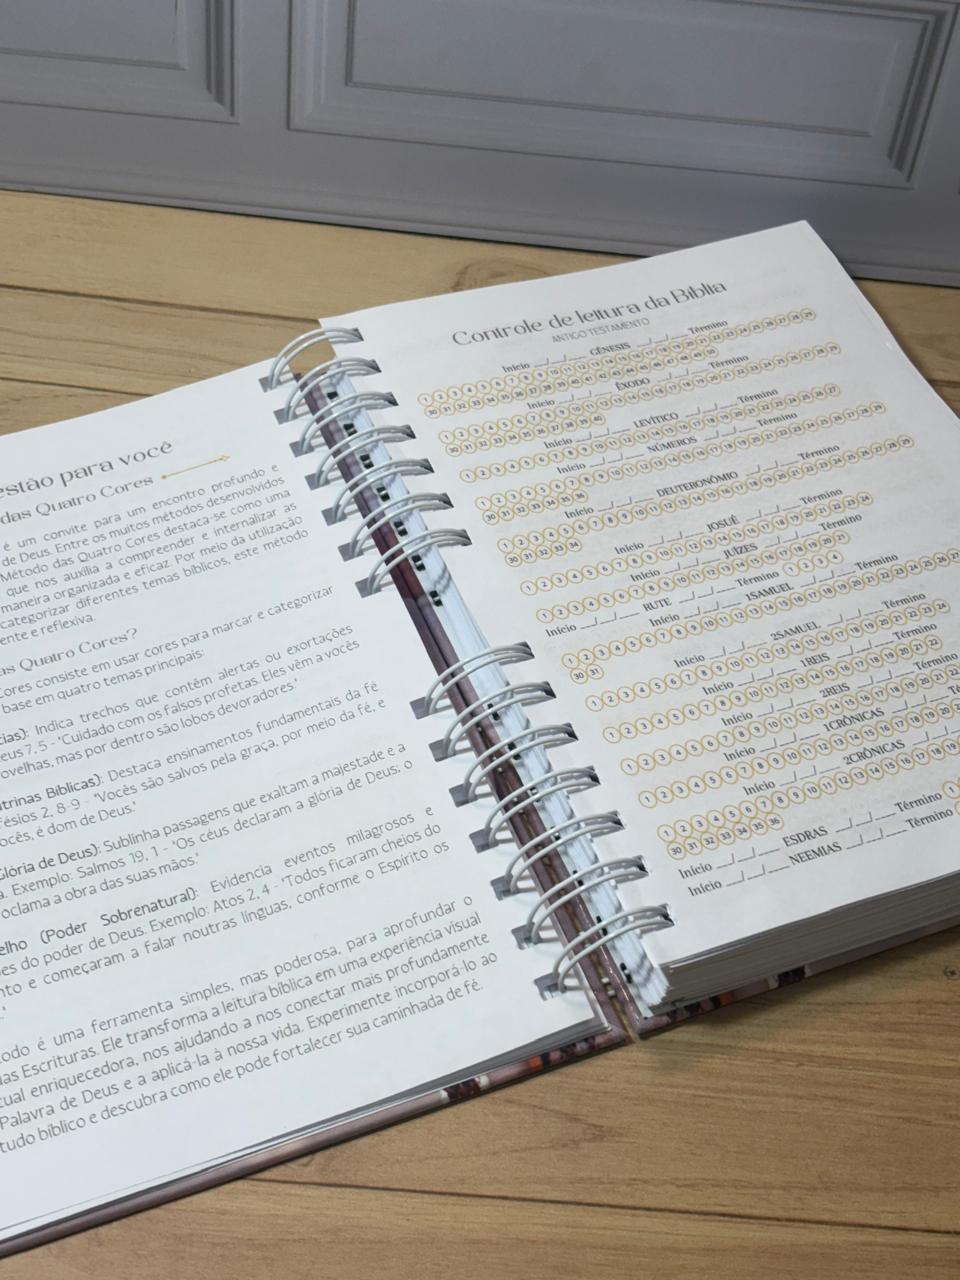 estão para você
das Quatro Cores
é um convite para um encontro profundo e
de Deus. Entre os muitos métodos desenvolvidos
Método das Quatro Cores destaca-se como uma
que nos auxilia a compreender e internalizar as
maneira organizada e eficaz. Por meio da utilização
categorizar diferentes temas bíblicos, este método
ente e reflexiva.
as Quatro Cores?
Cores consiste em usar cores para marcar e categorizar
base em quatro temas principais:
cias): Indica trechos que contêm alertas ou exortações
eus 7, 5 - "Cuidado com os falsos profetas. Eles vêm a vocês
ovelhas, mas por dentro são lobos devoradores."
utrinas Bíblicas): Destaca ensinamentos fundamentais da fé
fésios 2, 8-9 - "Vocês são salvos pela graça, por meio da fé, e
ocês, é dom de Deus."
Glória de Deus): Sublinha passagens que exaltam a majestade e a
a. Exemplo: Salmos 19, 1 - "Os céus declaram a glória de Deus; o
oclama a obra das suas mãos."
elho (Poder Sobrenatural): Evidencia eventos milagrosos e
es do poder de Deus. Exemplo: Atos 2, 4 - "Todos ficaram cheios do
nto e começaram a falar noutras línguas, conforme o Espírito os
odo é uma ferramenta simples, mas poderosa, para aprofundar o
as Escrituras. Ele transforma a leitura bíblica em uma experiência visual
tual enriquecedora, nos ajudando a nos conectar mais profundamente
Palavra de Deus e a aplicá-la à nossa vida. Experimente incorporá-lo ao
tudo bíblico e descubra como ele pode fortalecer sua caminhada de fé.
Controle de leitura da Bíblia
ANTIGO TESTAMENTO
Início __/__/__ GÊNESIS __/__/__ Término
1 2 3 4 5 6 7 8 9 10 11 12 13 14 15 16 17 18 19 20 21 22 23 24 25 26 27 28 29
30 31 32 33 34 35 36 37 38 39 40 41 42 43 44 45 46 47 48 49 50
Início __/__/__ ÊXODO __/__/__ Término
1 2 3 4 5 6 7 8 9 10 11 12 13 14 15 16 17 18 19 20 21 22 23 24 25 26 27 28 29
30 31 32 33 34 35 36 37 38 39 40
Início __/__/__ LEVÍTICO __/__/__ Término
1 2 3 4 5 6 7 8 9 10 11 12 13 14 15 16 17 18 19 20 21 22 23 24 25 26 27
Início __/__/__ NÚMEROS __/__/__ Término
1 2 3 4 5 6 7 8 9 10 11 12 13 14 15 16 17 18 19 20 21 22 23 24 25 26 27 28 29
30 31 32 33 34 35 36
Início __/__/__ DEUTERONÔMIO __/__/__ Término
1 2 3 4 5 6 7 8 9 10 11 12 13 14 15 16 17 18 19 20 21 22 23 24 25 26 27 28 29
30 31 32 33 34
Início __/__/__ JOSUÉ __/__/__ Término
1 2 3 4 5 6 7 8 9 10 11 12 13 14 15 16 17 18 19 20 21 22 23 24
Início __/__/__ JUÍZES __/__/__ Término
1 2 3 4 5 6 7 8 9 10 11 12 13 14 15 16 17 18 19 20 21
Início __/__/__ RUTE __/__/__ Término 1 2 3 4
Início __/__/__ 1SAMUEL __/__/__ Término
1 2 3 4 5 6 7 8 9 10 11 12 13 14 15 16 17 18 19 20 21 22 23 24 25 26 27 28
30 31
Início __/__/__ 2SAMUEL __/__/__ Término
1 2 3 4 5 6 7 8 9 10 11 12 13 14 15 16 17 18 19 20 21 22 23 24
Início __/__/__ 1REIS __/__/__ Término
1 2 3 4 5 6 7 8 9 10 11 12 13 14 15 16 17 18 19 20 21 22
Início __/__/__ 2REIS __/__/__ Término
1 2 3 4 5 6 7 8 9 10 11 12 13 14 15 16 17 18 19 20 21 22
Início __/__/__ 1CRÔNICAS __/__/__ Término
1 2 3 4 5 6 7 8 9 10 11 12 13 14 15 16 17 18 19 20 21 22
Início __/__/__ 2CRÔNICAS __/__/__
1 2 3 4 5 6 7 8 9 10 11 12 13 14 15 16 17 18 19
30 31 32 33 34 35 36
Início __/__/__ ESDRAS __/__/__ Término 1
Início __/__/__ NEEMIAS __/__/__ Término